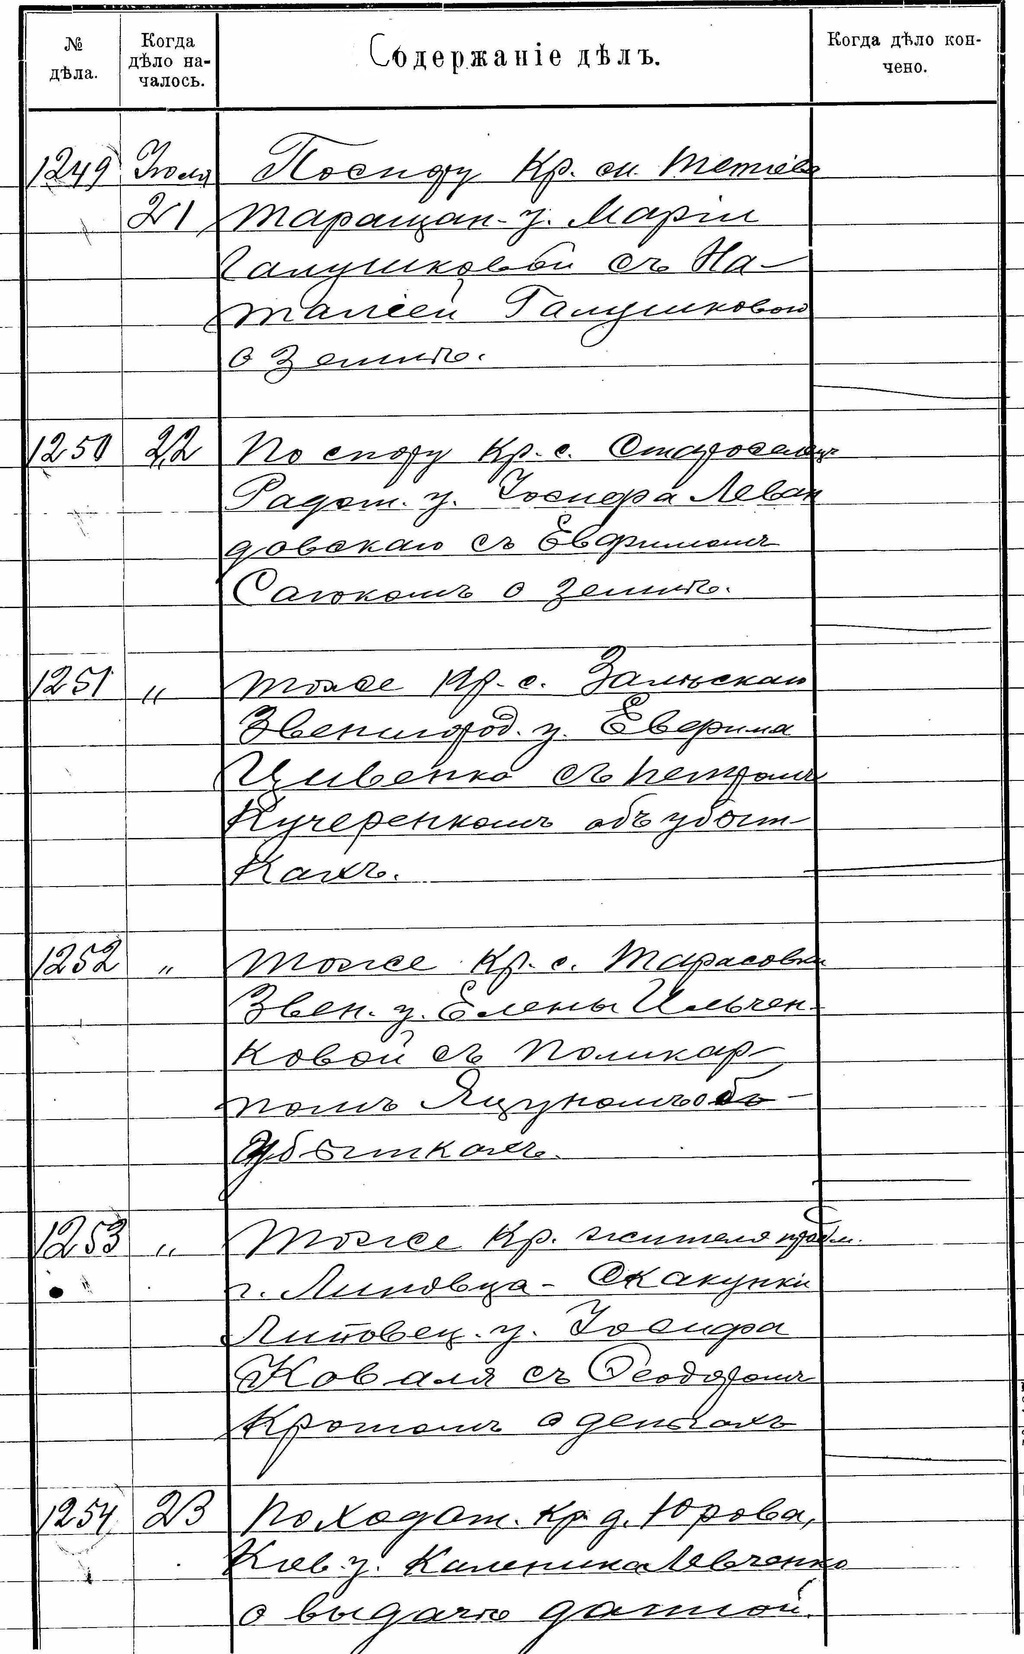 № дѣла.
Когда дѣло на-
чалось.
Содержаніе дѣлъ.
Когда дѣло кон-
чено.
1249 Іюля По спору Кр. м. Тетіева
21 Таращан. у. Маріи
Галушковой съ На-
таліей Галушковою
о землѣ.
1250 22 По спору Кр. с. Староселец
Радом. у. Іосифа Леван
довскаго съ Евфимомъ
Сагокомъ о землѣ.
1251 „ Тоже Кр. с. Залѣскаго
Звенигород. у.
Цивенко съ Петромъ
Кучеренкомъ объ убыт-
кахъ.
1252 „ Тоже Кр. с. Тарасовки
Звен. у. Елены Ильчен-
ковой съ Поликар-
помъ Яцуномъ объ
убыткахъ.
1253 „ Тоже Кр. жителя
г. Липовца - Скакунки
Липовец. у. Іосифа
Коваля съ Ѳеодоромъ
Кротомъ о деньгахъ
1254 23 По ходат. Кр. д. Юрова,
Кіев. у. Каленика Левченко
о выдачѣ данной.